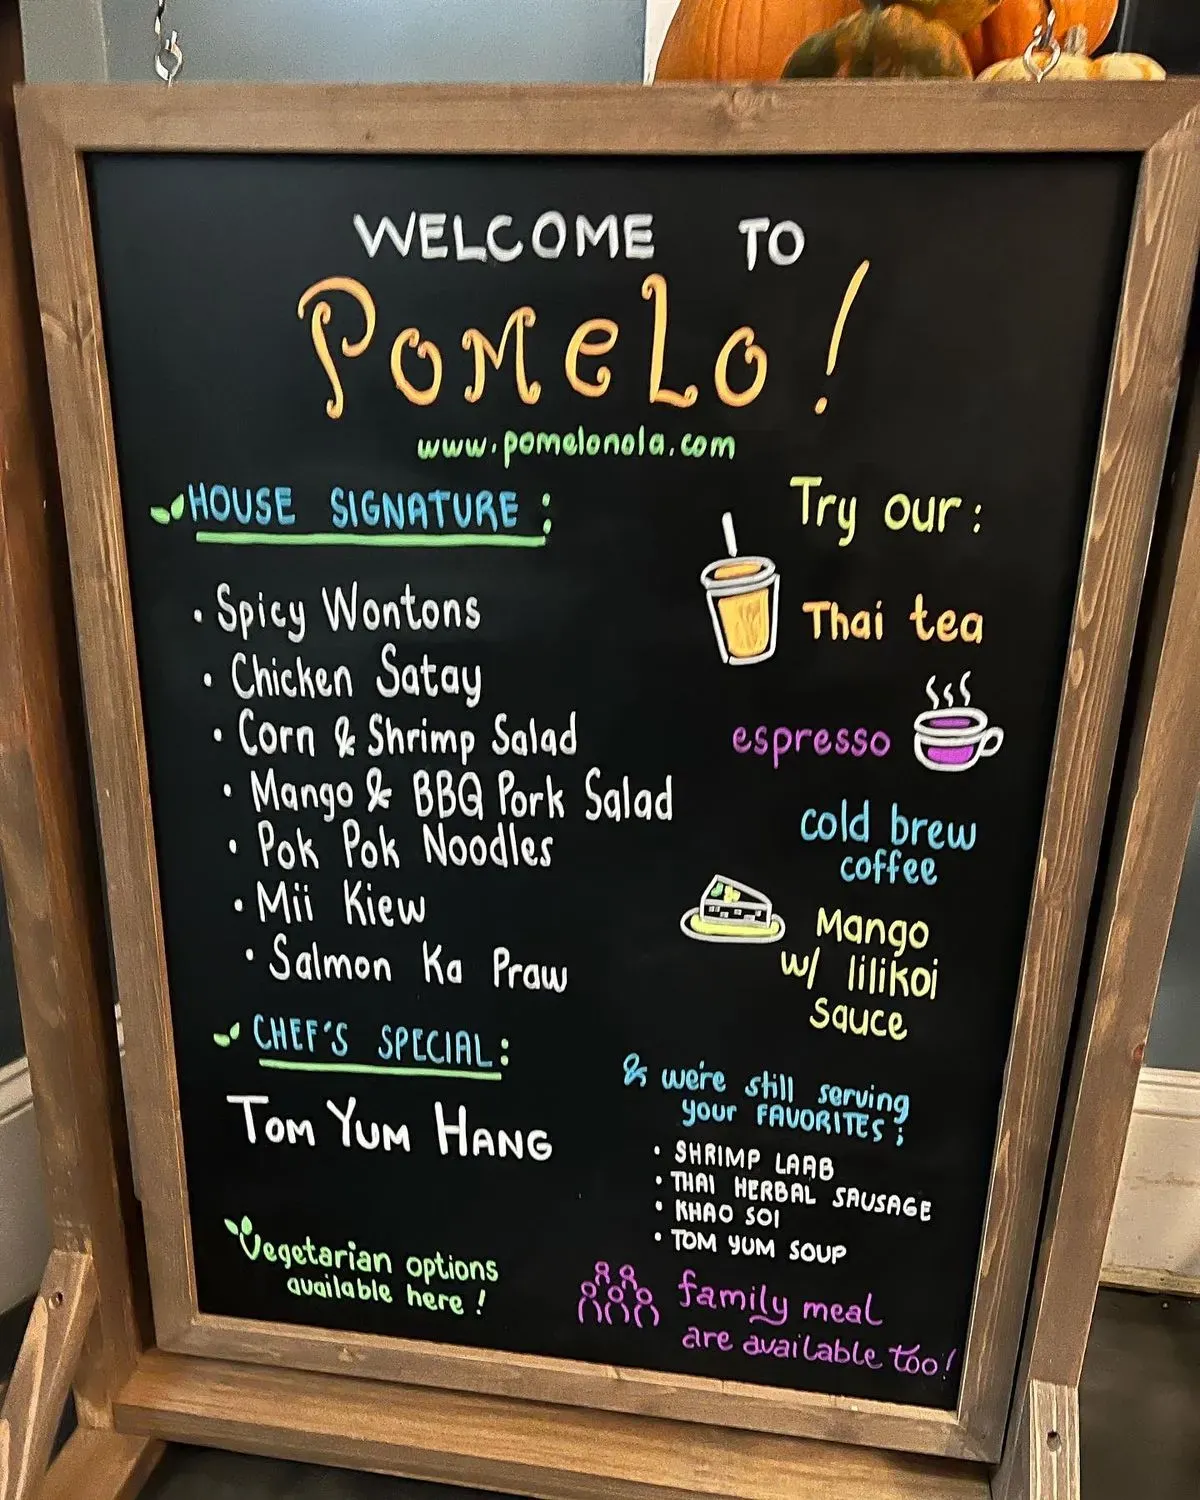 WELCOME TO
POMELO!
www.pomelonola.com
HOUSE SIGNATURE:
• Spicy Wontons
• Chicken Satay
• Corn & Shrimp Salad
• Mango & BBQ Pork Salad
• Pok Pok Noodles
• Mii Kiew
• Salmon Ka Praw
CHEF'S SPECIAL:
TOM YUM HANG
Vegetarian options
available here!
Try our:
Thai tea
espresso
cold brew
coffee
Mango
w/ lilikoi
sauce
& we're still serving
your FAVORITES;
• SHRIMP LAAB
• THAI HERBAL SAUSAGE
• KHAO SOI
• TOM YUM SOUP
family meal
are available too!